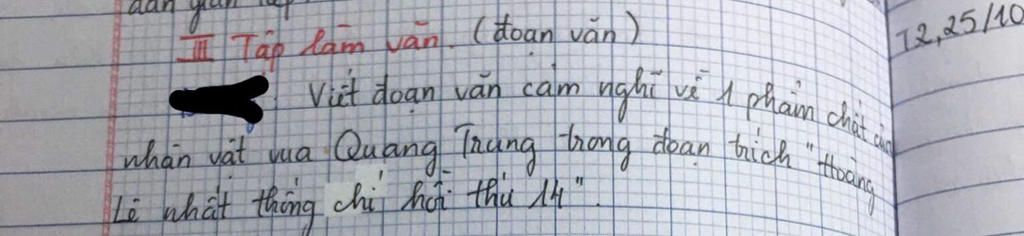 dân gian
III Tập làm văn. (đoạn văn)
T2, 25/10
Viết đoạn văn cảm nghĩ về 1 phẩm chất của
nhân vật vua Quang Trung trong đoạn trích "Hoàng
Lê nhất thống chí hồi thứ 14".